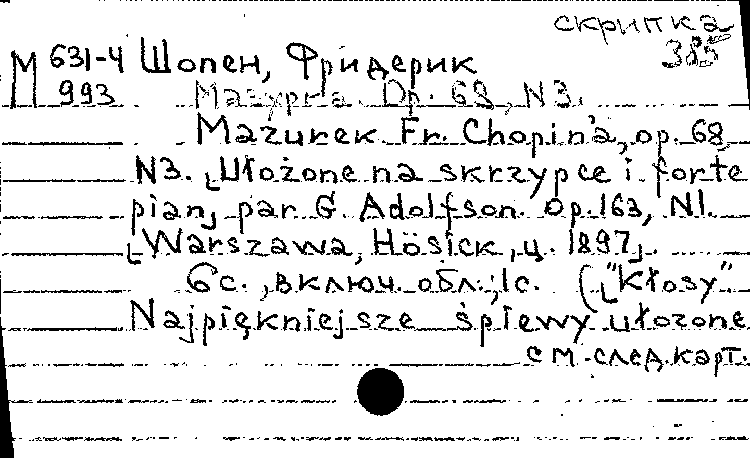 скрипка
385
М 631-4 Шопен, Фридерик
993 Мазурка. Op. 68, N3.
Mazurek Fr. Chopin'a, op. 68,
N3. [Ułożone na skrzypce i forte
pian] par G. Adolfson. Op. 163, N1.
[Warszawa, Hösick, ц. 1897].
6 с., включ. обл.; 1с. (["Kłosy"
Najpiękniejsze śpiewy ułozone
см. след. карт.